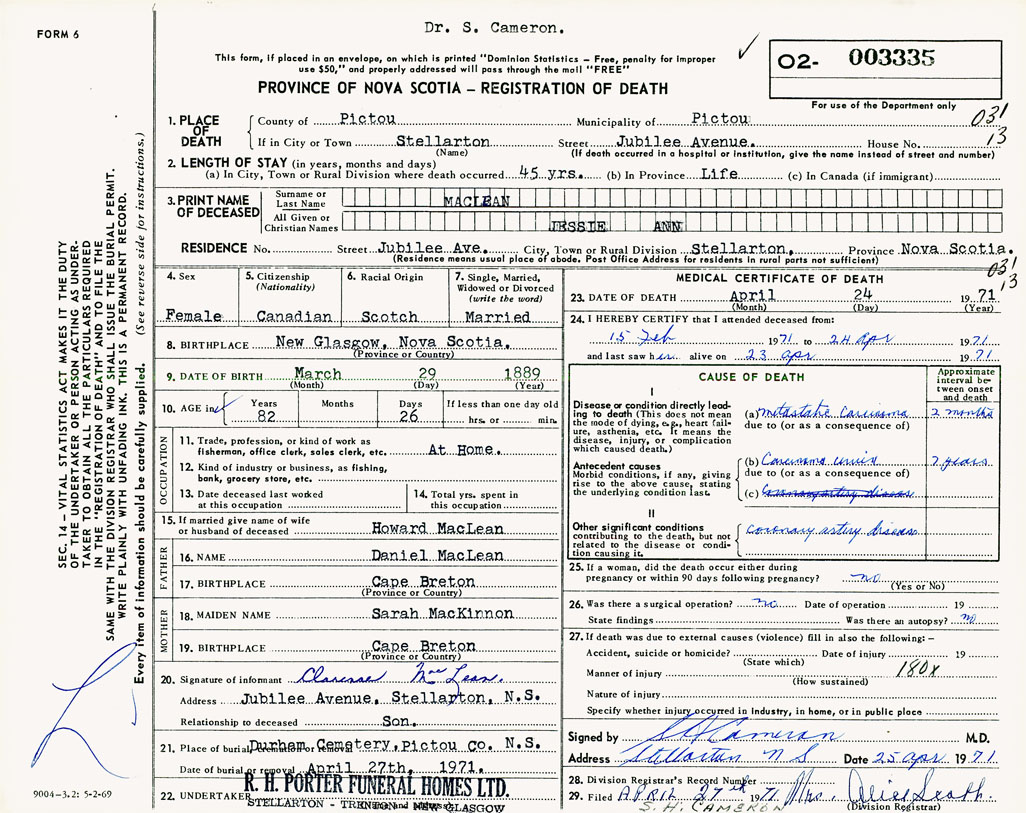 Dr. S. Cameron.
FORM 6
This form, if placed in an envelope, on which is printed "Dominion Statistics – Free, penalty for improper
use $50," and properly addressed will pass through the mail "FREE"
PROVINCE OF NOVA SCOTIA – REGISTRATION OF DEATH
✓
O2- 003335
For use of the Department only
031
13
1. PLACE OF DEATH County of Pictou Municipality of Pictou
If in City or Town Stellarton Street Jubilee Avenue. House No.
(Name) (If death occurred in a hospital or institution, give the name instead of street and number)
2. LENGTH OF STAY (in years, months and days)
(a) In City, Town or Rural Division where death occurred 45 yrs. (b) In Province Life (c) In Canada (if immigrant)
3. PRINT NAME OF DECEASED
Surname or Last Name MACLEAN
All Given or Christian Names JESSIE ANN
RESIDENCE No. Street Jubilee Ave. City, Town or Rural Division Stellarton, Province Nova Scotia.
(Residence means usual place of abode. Post Office Address for residents in rural parts not sufficient)
031
13
4. Sex
Female
5. Citizenship
(Nationality)
Canadian
6. Racial Origin
Scotch
7. Single, Married,
Widowed or Divorced
(write the word)
Married
8. BIRTHPLACE New Glasgow, Nova Scotia.
(Province or Country)
9. DATE OF BIRTH March 29 1889
(Month) (Day) (Year)
10. AGE in ✓ Years Months Days If less than one day old
82 26 hrs. or min.
OCCUPATION
11. Trade, profession, or kind of work as
fisherman, office clerk, sales clerk, etc. At Home.
12. Kind of industry or business, as fishing,
bank, grocery store, etc.
13. Date deceased last worked
at this occupation
14. Total yrs. spent in
this occupation
15. If married give name of wife
or husband of deceased Howard MacLean
FATHER
16. NAME Daniel MacLean
17. BIRTHPLACE Cape Breton
(Province or Country)
MOTHER
18. MAIDEN NAME Sarah MacKinnon
19. BIRTHPLACE Cape Breton
(Province or Country)
20. Signature of informant Clarence MacLean.
Address Jubilee Avenue, Stellarton, N.S.
Relationship to deceased Son.
21. Place of burial, cremation or removal Durham Cemetery, Pictou Co. N.S.
Date of burial or removal April 27th, 1971.
22. UNDERTAKER R. H. PORTER FUNERAL HOMES LTD.
STELLARTON - TRENTON - NEW GLASGOW
MEDICAL CERTIFICATE OF DEATH
23. DATE OF DEATH April 24 1971
(Month) (Day) (Year)
24. I HEREBY CERTIFY that I attended deceased from:
15 Feb 1971 to 24 Apr 1971
and last saw her alive on 23 Apr 1971
CAUSE OF DEATH
Approximate
interval be-
tween onset
and death
I
Disease or condition directly lead-
ing to death (This does not mean
the mode of dying, e.g., heart fail-
ure, asthenia, etc. It means the
disease, injury, or complication
which caused death.)
(a) Metastatic Carcinoma 2 months
due to (or as a consequence of)
Antecedent causes
Morbid conditions, if any, giving
rise to the above cause, stating
the underlying condition last.
(b) Carcinoma cervix 7 years
due to (or as a consequence of)
(c) Coronary artery disease
II
Other significant conditions
contributing to the death, but not
related to the disease or condi-
tion causing it.
coronary artery disease
25. If a woman, did the death occur either during
pregnancy or within 90 days following pregnancy? no
(Yes or No)
26. Was there a surgical operation? no Date of operation 19
State findings Was there an autopsy? no
27. If death was due to external causes (violence) fill in also the following: –
Accident, suicide or homicide? Date of injury 19
(State which)
Manner of injury 180X
(How sustained)
Nature of injury
Specify whether injury occurred in industry, in home, or in public place
Signed by S H Cameron M.D.
Address Stellarton N S Date 25 Apr 1971
28. Division Registrar's Record Number
29. Filed APRIL 27th 1971 Mrs. Alice
(Division Registrar)
S. H. CAMERON
SEC. 14 – VITAL STATISTICS ACT MAKES IT THE DUTY
OF THE UNDERTAKER OR PERSON ACTING AS UNDER-
TAKER TO OBTAIN ALL THE PARTICULARS REQUIRED
IN THE "REGISTRATION OF DEATH" AND TO FILE THE
SAME WITH THE DIVISION REGISTRAR WHO SHALL ISSUE THE BURIAL PERMIT.
WRITE PLAINLY WITH UNFADING INK. THIS IS A PERMANENT RECORD.
Every item of information should be carefully supplied. (See reverse side for instructions.)
9004-3.2: 5-2-69